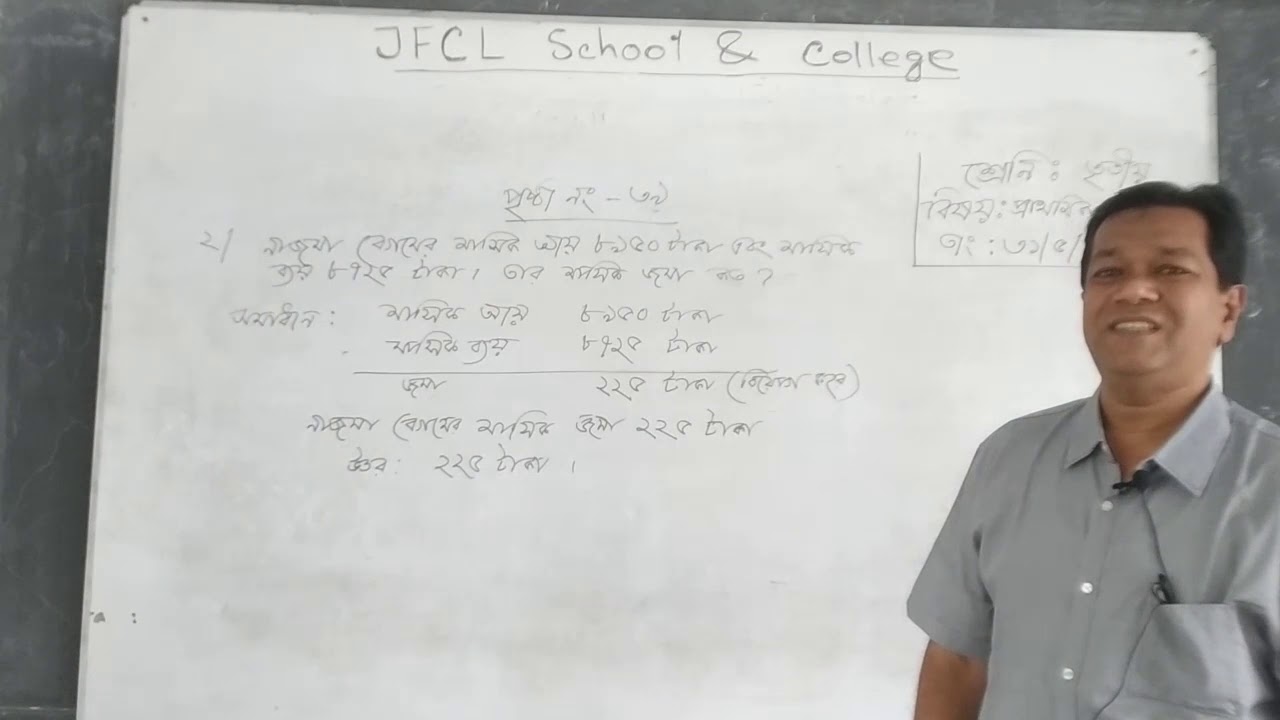 JFCL School & College
শ্রেনি : তৃতীয়
বিষয়: প্রাথমিক
তাং : ৩১/৫/
পৃষ্ঠা নং - ৩৯
২/ নাজমা বেগমের মাসিক আয় ৮৯৫০ টাকা এবং মাসিক
ব্যয় ৮৭২৫ টাকা। তার মাসিক জমা কত ?
সমাধান : মাসিক আয় ৮৯৫০ টাকা
মাসিক ব্যয় ৮৭২৫ টাকা
জমা ২২৫ টাকা (বিয়োগ করে)
নাজমা বেগমের মাসিক জমা ২২৫ টাকা
উত্তর : ২২৫ টাকা ।